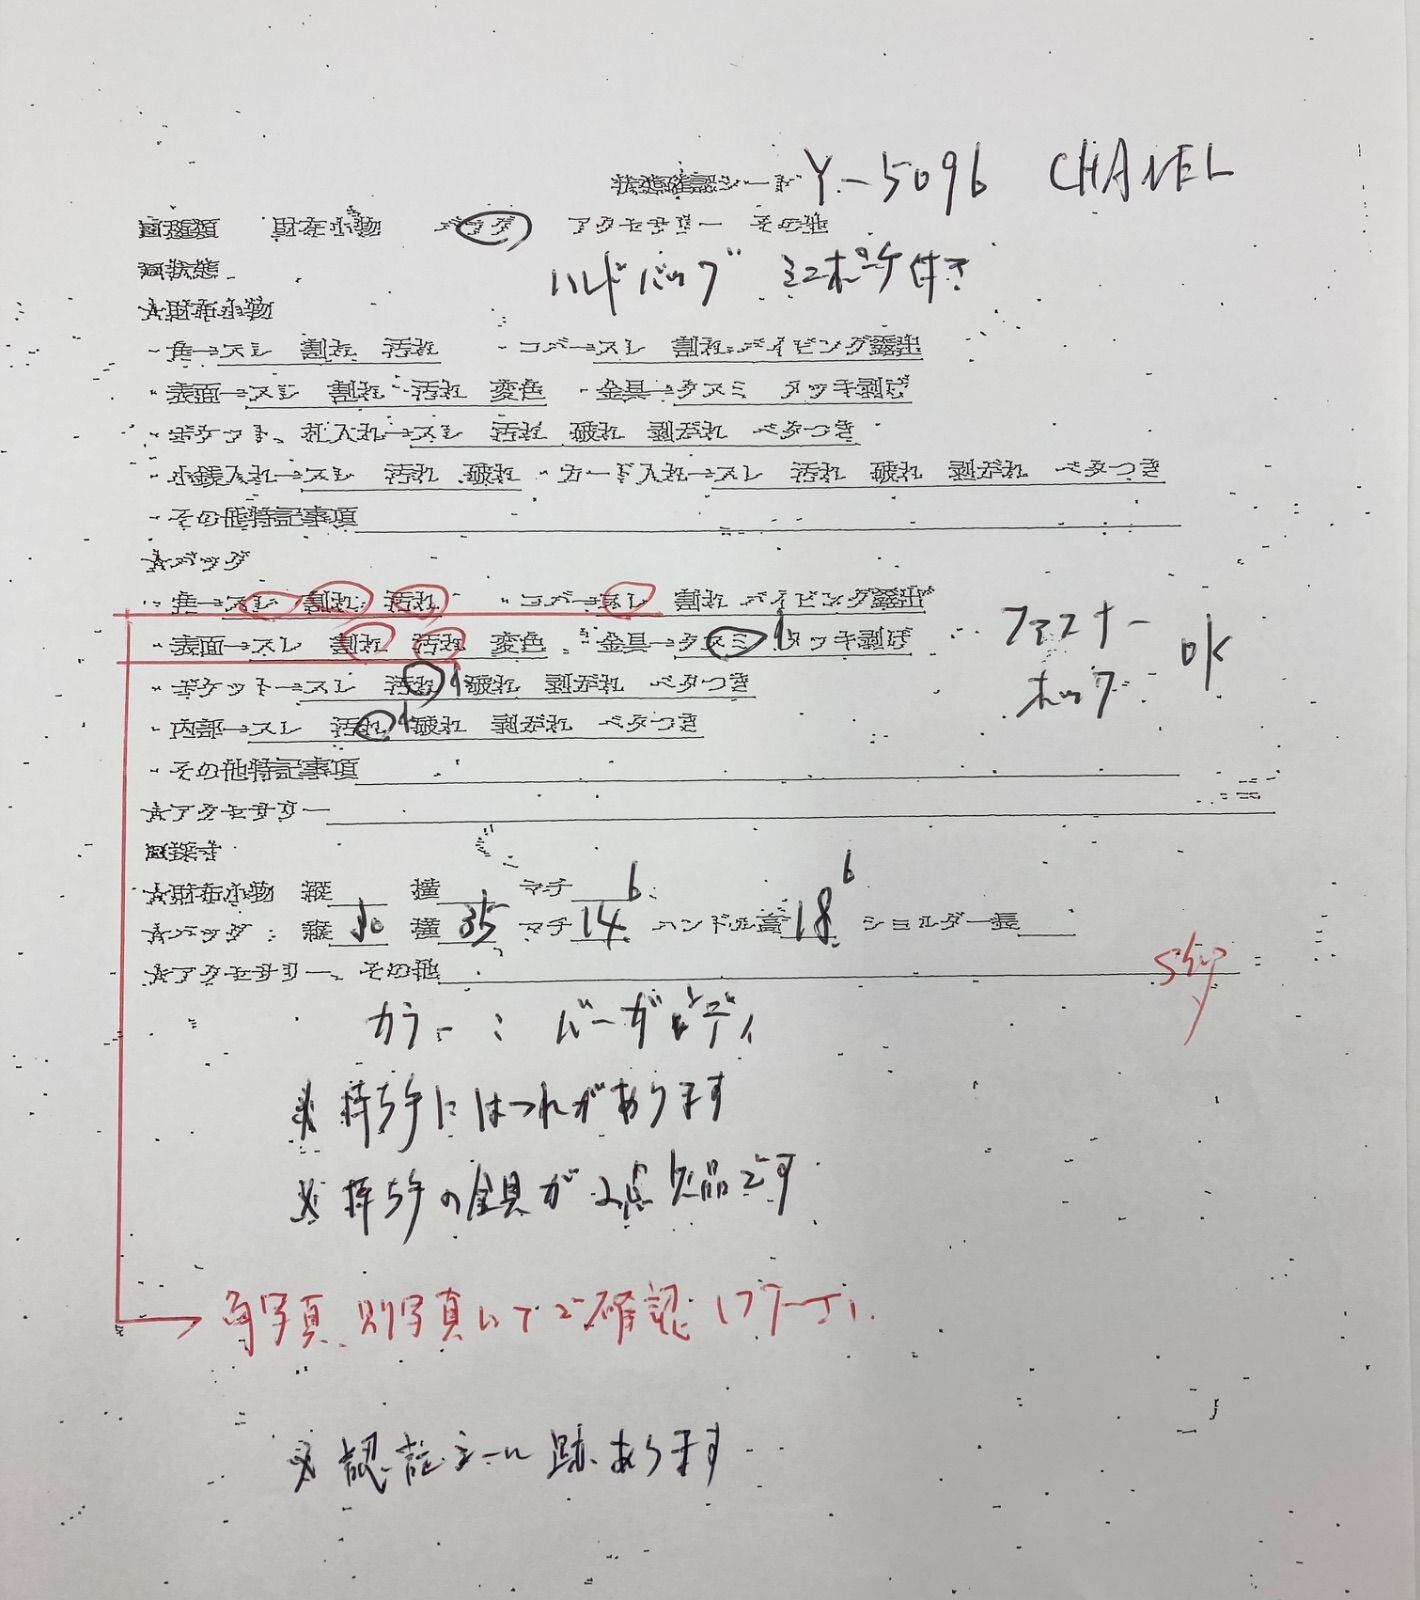 状態確認シート Y-5096 CHANEL
■種類 財布小物 バッグ アクセサリー その他
■状態 ハンドバッグ ミニポーチ付き
★財布小物
・角→スレ 割れ 汚れ ・コバ→スレ 割れ パイピング露出
・表面→スレ 割れ 汚れ 変色 ・金具→クスミ メッキ剥げ
・ポケット、札入れ→スレ 汚れ 破れ 型崩れ ベタつき
・小銭入れ→スレ 汚れ 破れ ・カード入れ→スレ 汚れ 破れ 型崩れ ベタつき
・その他特記事項
★バッグ
・角→スレ 割れ 汚れ ・コバ→スレ 割れ パイピング露出
・表面→スレ 割れ 汚れ 変色 ・金具→クスミ 小 メッキ剥げ ファスナー
・ポケット→スレ 汚れ 小 破れ 型崩れ ベタつき ホック OK
・内部→スレ 汚れ 小 破れ 型崩れ ベタつき
・その他特記事項
★アクセサリー
■採寸
★財布小物 縦 横 マチ 6
★バッグ：縦 30 横 35 マチ 14 ハンドル高 18 6 ショルダー長
★アクセサリー、その他
カラー：バーガンディ
※持ち手にほつれがあります
※持ち手の金具が2点欠品です
角写真、別写真にてご確認下さい
※認証シール跡あります